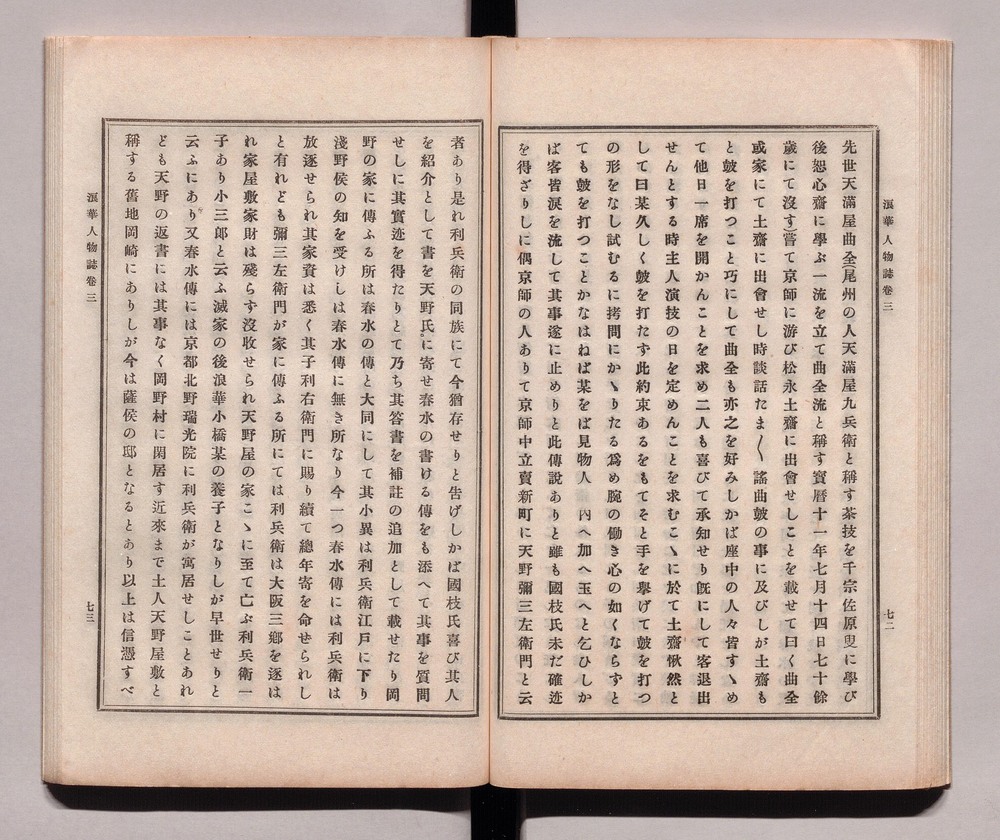 浪華人物誌卷三
七二
先世天滿屋曲全(尾州の人天滿屋九兵衞と稱す茶技を千宗佐原叟に學び
後恕心齋に學ぶ一流を立て曲全流と稱す寶曆十一年七月十四日七十餘
歲にて沒す)嘗て京師に游び松永土齋に出會せしことを載せて曰く曲全
或家にて土齋に出會せし時談話たま〱謠曲皷の事に及びしが土齋も
と皷を打つこと巧にして曲全も亦之を好みしかば座中の人々皆すゝめ
て他日一席を開かんことを求め二人も喜びて承知せり旣にして客退出
せんとする時主人演技の日を定めんことを求むこゝに於て土齋愀然と
して曰某久しく皷を打たず此約束あるをもてそと手を擧げて皷を打つ
の形をなし試むるに拷問にかゝりたる爲め腕の働き心の如くならずと
ても皷を打つことかなはねば某をば見物人 內へ加へ玉へと乞ひしか
ば客皆淚を流して其事遂に止めりと此傳說ありと雖も國枝氏未だ確迹
を得ざりしに偶京師の人ありて京師中立賣新町に天野彌三左衞門と云
者あり是れ利兵衞の同族にて今猶存せりと告げしかば國枝氏喜び其人
を紹介として書を天野氏に寄せ春水の書ける傳をも添へて其事を質問
せしに其實迹を得たりとて乃ち其答書を補註の追加として載せたり岡
野の家に傳ふる所は春水の傳と大同にして其小異は利兵衞江戶に下り
淺野侯の知を受けしは春水傳に無き所なり今一つ春水傳には利兵衞は
放逐せられ其家資は悉く其子利右衞門に賜り續て總年寄を命せられし
と有れども彌三左衞門が家に傳ふる所にては利兵衞は大阪三鄕を逐は
れ家屋敷家財は殘らず沒收せられ天野屋の家こゝに至て亡ぶ利兵衞一
子あり小三郎と云ふ滅家の後浪華小橋某の養子となりしが早世せりと
云ふにあり又春水傳には京都北野瑞光院に利兵衞が寓居せしことあれ
ども天野の返書には其事なく岡野村に閑居す近來まで土人天野屋敷と
稱する舊地岡崎にありしが今は薩侯の邸となるとあり以上は信憑すべ
浪華人物誌卷三
七三